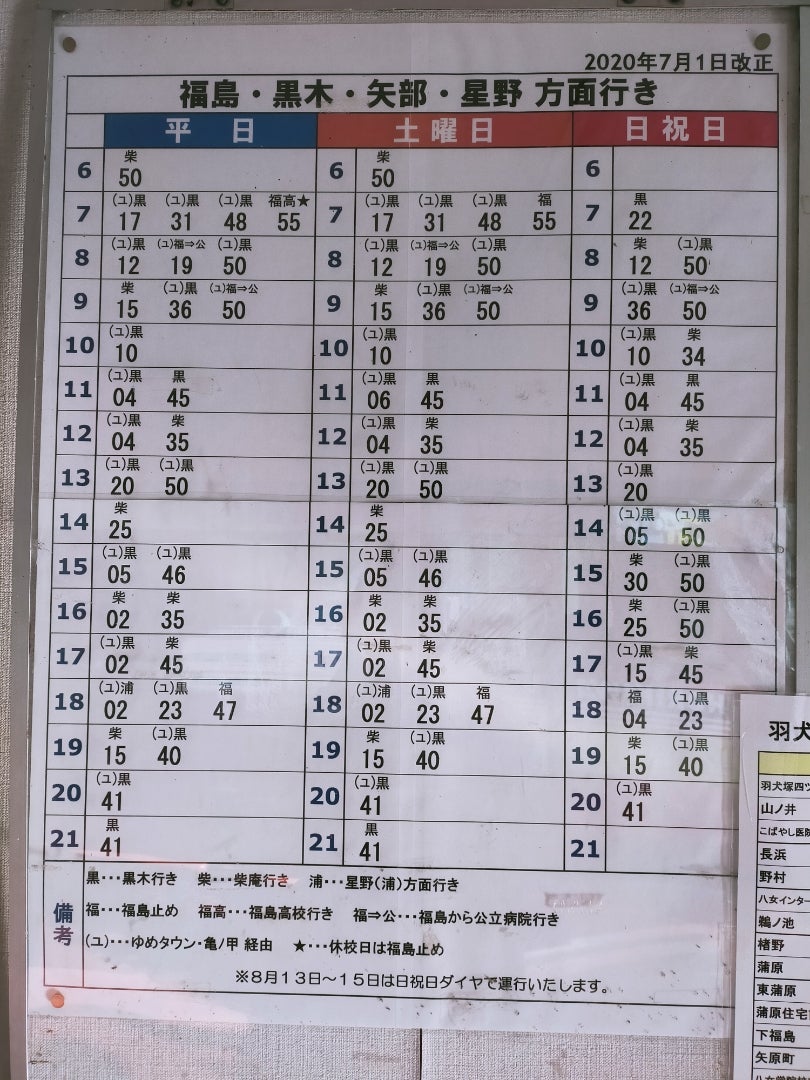 2020年7月1日改正
福島・黒木・矢部・星野 方面行き
平 日 土曜日 日祝日
6 柴 50 6 柴 50 6
7 (ユ)黒 17 (ユ)黒 31 (ユ)黒 48 福高★ 55 7 (ユ)黒 17 (ユ)黒 31 (ユ)黒 48 福 55 7 黒 22
8 (ユ)黒 12 (ユ)福⇒公 19 (ユ)黒 50 8 (ユ)黒 12 (ユ)福⇒公 19 (ユ)黒 50 8 柴 12 (ユ)黒 50
9 柴 15 (ユ)黒 36 (ユ)福⇒公 50 9 柴 15 (ユ)黒 36 (ユ)福⇒公 50 9 (ユ)黒 36 (ユ)福⇒公 50
10 (ユ)黒 10 10 (ユ)黒 10 10 (ユ)黒 10 柴 34
11 (ユ)黒 04 黒 45 11 (ユ)黒 06 黒 45 11 (ユ)黒 04 黒 45
12 (ユ)黒 04 柴 35 12 (ユ)黒 04 柴 35 12 (ユ)黒 04 柴 35
13 (ユ)黒 20 (ユ)黒 50 13 (ユ)黒 20 (ユ)黒 50 13 (ユ)黒 20
14 柴 25 14 柴 25 14 (ユ)黒 05 (ユ)黒 50
15 (ユ)黒 05 (ユ)黒 46 15 (ユ)黒 05 (ユ)黒 46 15 柴 30 (ユ)黒 50
16 柴 02 柴 35 16 柴 02 柴 35 16 柴 25 (ユ)黒 50
17 (ユ)黒 02 柴 45 17 (ユ)黒 02 柴 45 17 (ユ)黒 15 柴 45
18 (ユ)浦 02 (ユ)黒 23 福 47 18 (ユ)浦 02 (ユ)黒 23 福 47 18 福 04 (ユ)黒 23
19 柴 15 (ユ)黒 40 19 柴 15 (ユ)黒 40 19 柴 15 (ユ)黒 40
20 (ユ)黒 41 20 (ユ)黒 41 20 (ユ)黒 41
21 黒 41 21 黒 41 21
備考
黒･･･黒木行き 柴･･･柴庵行き 浦･･･星野(浦)方面行き
福･･･福島止め 福高･･･福島高校行き 福⇒公･･･福島から公立病院行き
(ユ)･･･ゆめタウン・亀ノ甲 経由 ★･･･休校日は福島止め
※8月13日～15日は日祝日ダイヤで運行いたします。
羽犬
羽犬塚四ツ
山ノ井
こばやし医院
長浜
野村
八女インター
鵜ノ池
楮野
蒲原
東蒲原
蒲原住宅
下福島
矢原町